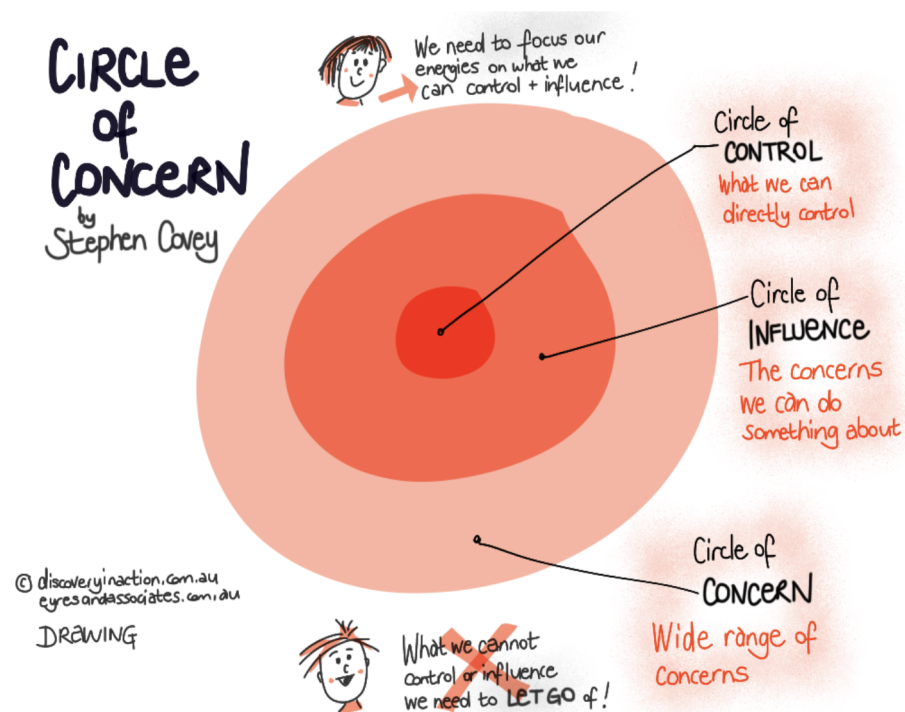 CIRCLE
of
CONCERN
by
Stephen Covey
We need to focus our
energies on what we
can control + influence!
Circle of
CONTROL
What we can
directly control
Circle of
INFLUENCE
The concerns
we can do
something about
Circle of
CONCERN
Wide range of
concerns
© discoveryinaction.com.au
eyresandassociates.com.au
DRAWING
What we cannot
control or influence
we need to LET GO of!